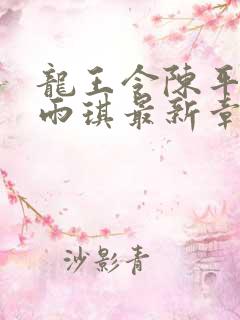 龍王令陳平
雨琪最新章
沙影青